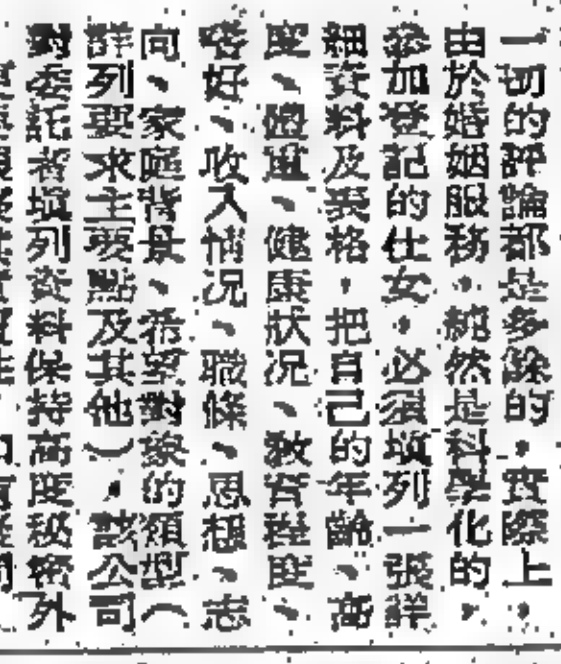 一切的評論都是多餘的,實際上,
由於婚姻服務,純然是科學化的,
參加登記的仕女,必須填列一張詳
細資料及表格,把自己的年齡、高
度、體重、健康狀况、敎育程度、
嗜好、收入情况、職條、思想、志
向、家庭背景、希望對象的類型(
詳列要求主要點及其他),該公司
對委託者填列資料保持高度秘密外